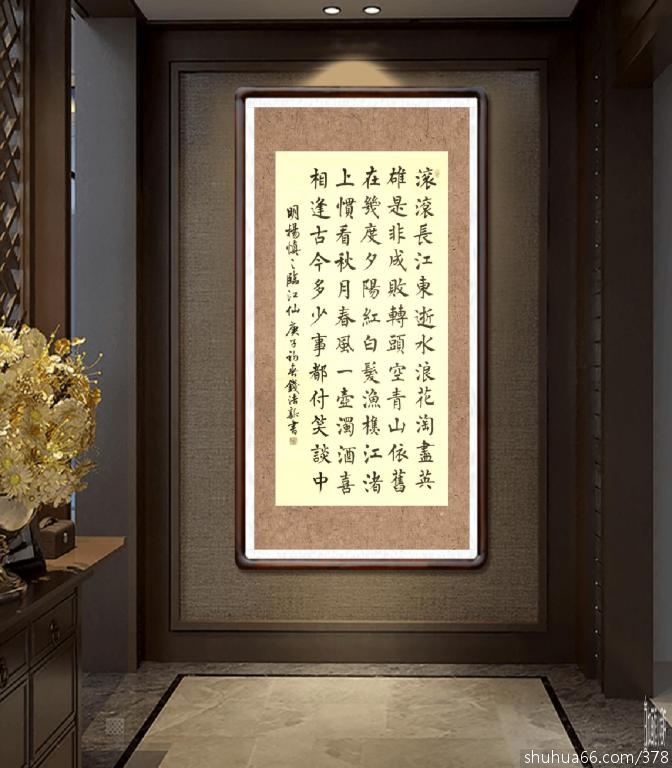 滚滚長江東逝水浪花淘盡英
雄是非成敗轉頭空青山依舊
在幾度夕陽紅白髮漁樵江渚
上慣看秋月春風一壺濁酒喜
相逢古今多少事都付笑談中
明楊慎之臨江仙庚子初春錢浩龍書
shuhua66.com/378